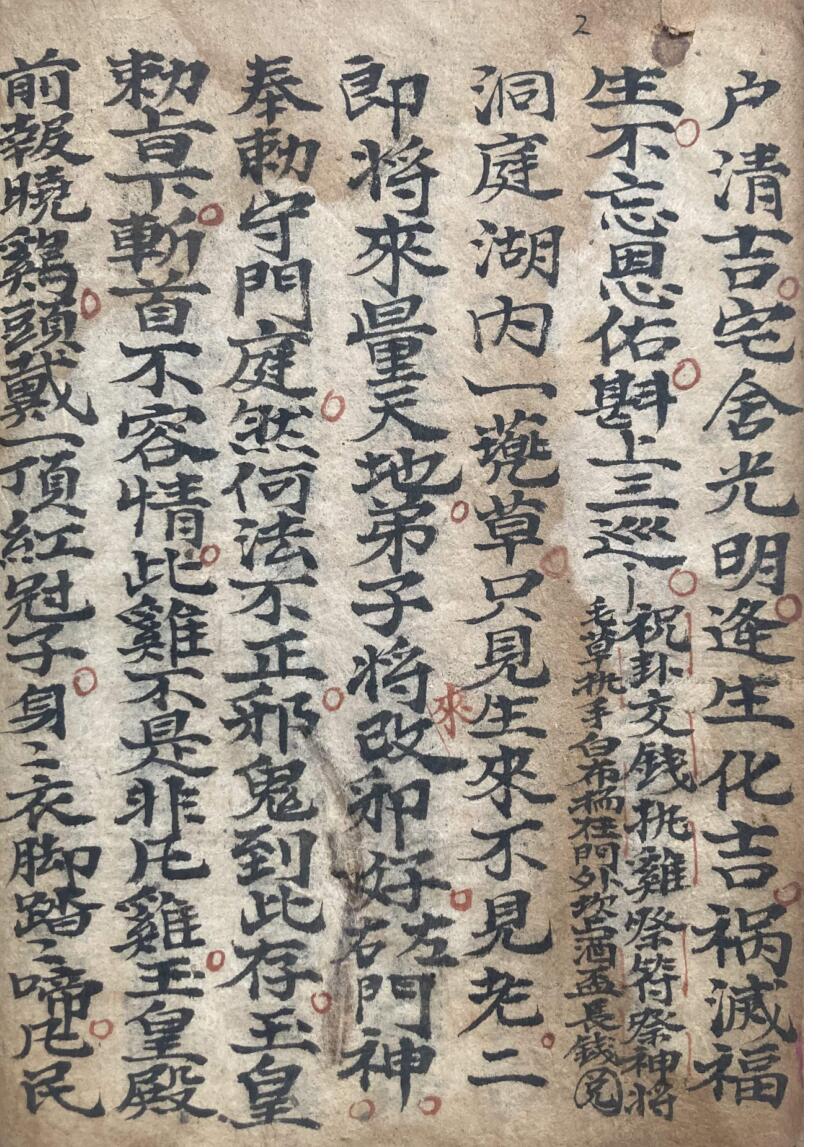 2
户清吉宅舍光明逢生化吉祸滅福
生不忘恩佑斟上三巡
祝卦交錢執雞祭符祭神将
毛草执手白布 在門外 酒盃長錢
洞庭湖内一 草只見生來不見老二
即将來量天地弟子将來改邪好左右門神
奉勅守門庭然何法不正邪鬼到此存玉皇
勅旨下斬首不容情此雞不是非凡雞王皇殿
前報曉鷄頭戴一頂紅冠子身〻衣脚踏〻啼凡民